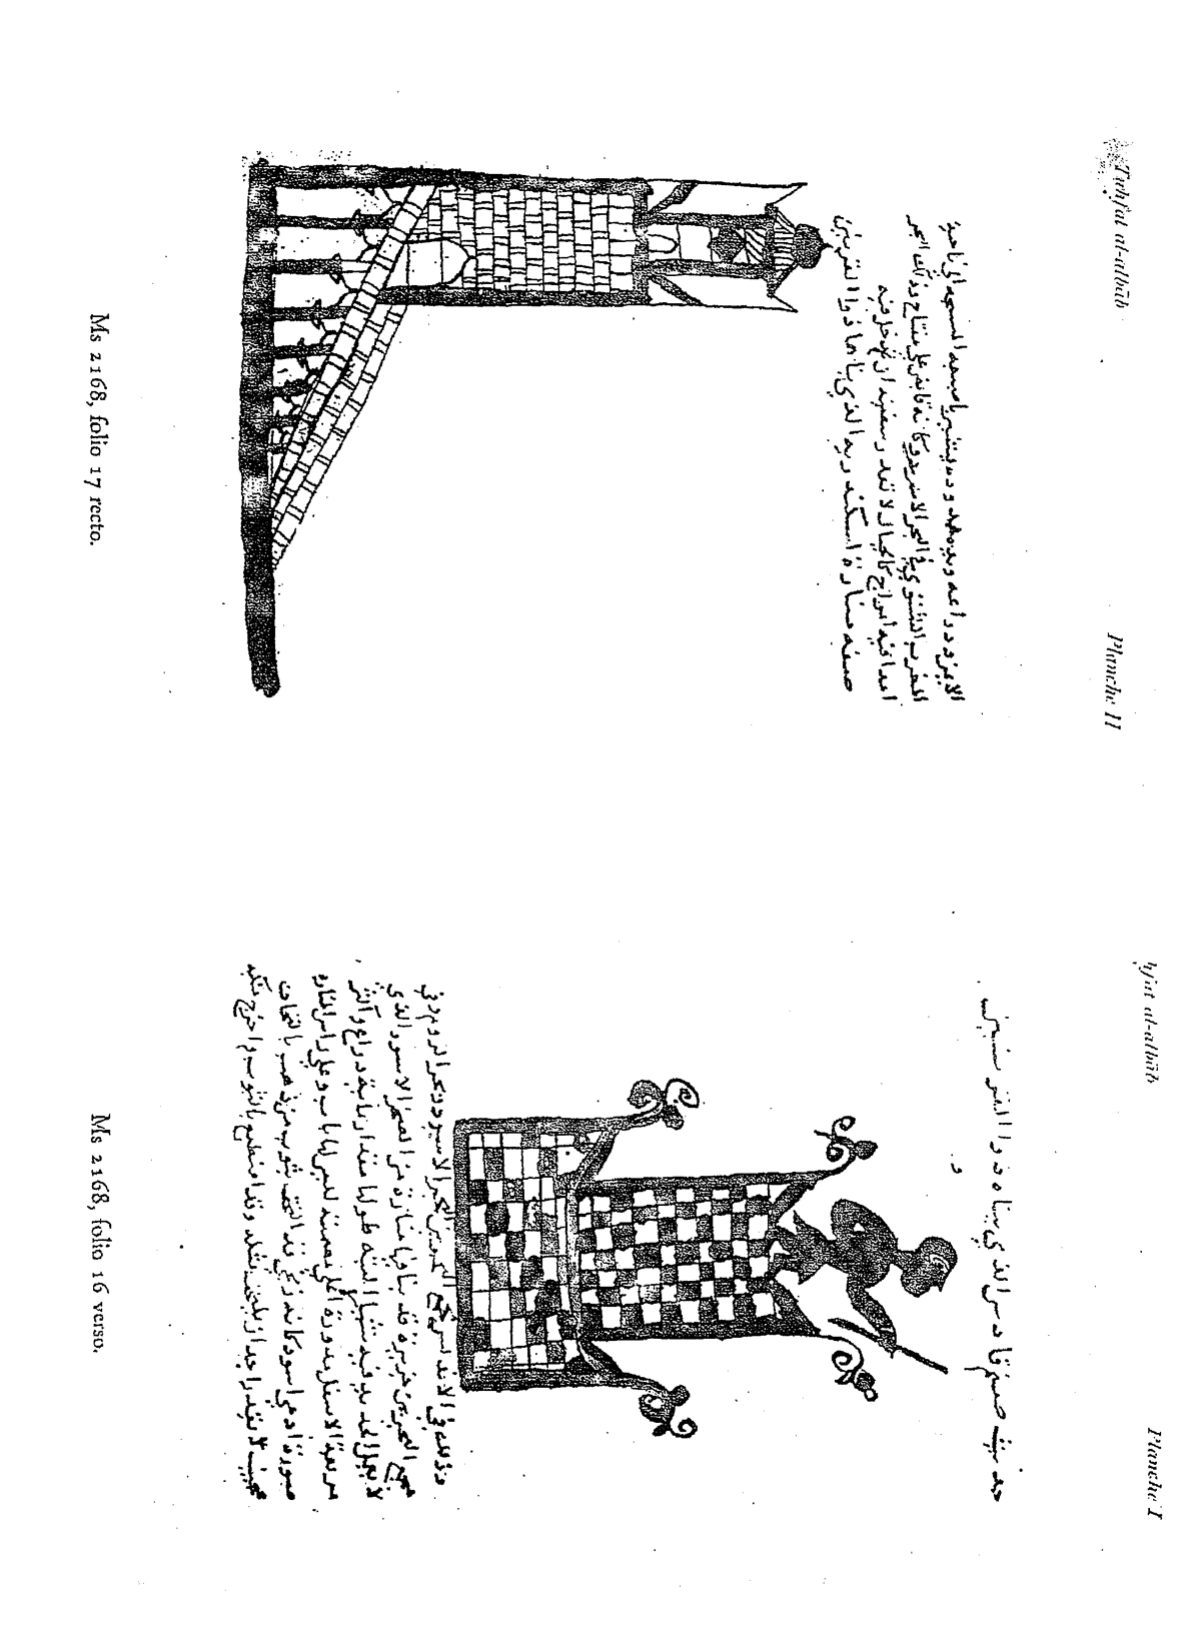 Tuhfat al-albāb
Planche II
المغرب الشتوي في البحر الاخضر وكانه قابض على مفتاح وذلك البحر
ابدا فيه امواج كالجبال لا تقدر سفينه ان تدخل فيه
صفه منارة اسكندرية الذي بناها ذوا القرنين
Ms 2168, folio 17 recto.
Planche I
حديث صنم قادس الذي بناه ذوا القرنين
وذلك في الاندلس مجمع البحرين البحر الاسود وبحر الروم وفي
مجمع البحرين جزيرة قد بنا فيها منارة من الصخر الاسود الذي
لا يعمل الحديد فيه شيا البته طولها مقدار ماية دراع واكثر
مربعة الاسفل مدورة اعلى مصمتة ليس لها باب وعلى راس المناره
صورة ادمي اسود كانه زنجي قد التحف بثوب من ذهب
عجيب لا يقدر احد ان يلتحف مثله وقد اضطبع بالثوب واخرج منكبه
Ms 2168, folio 16 verso.